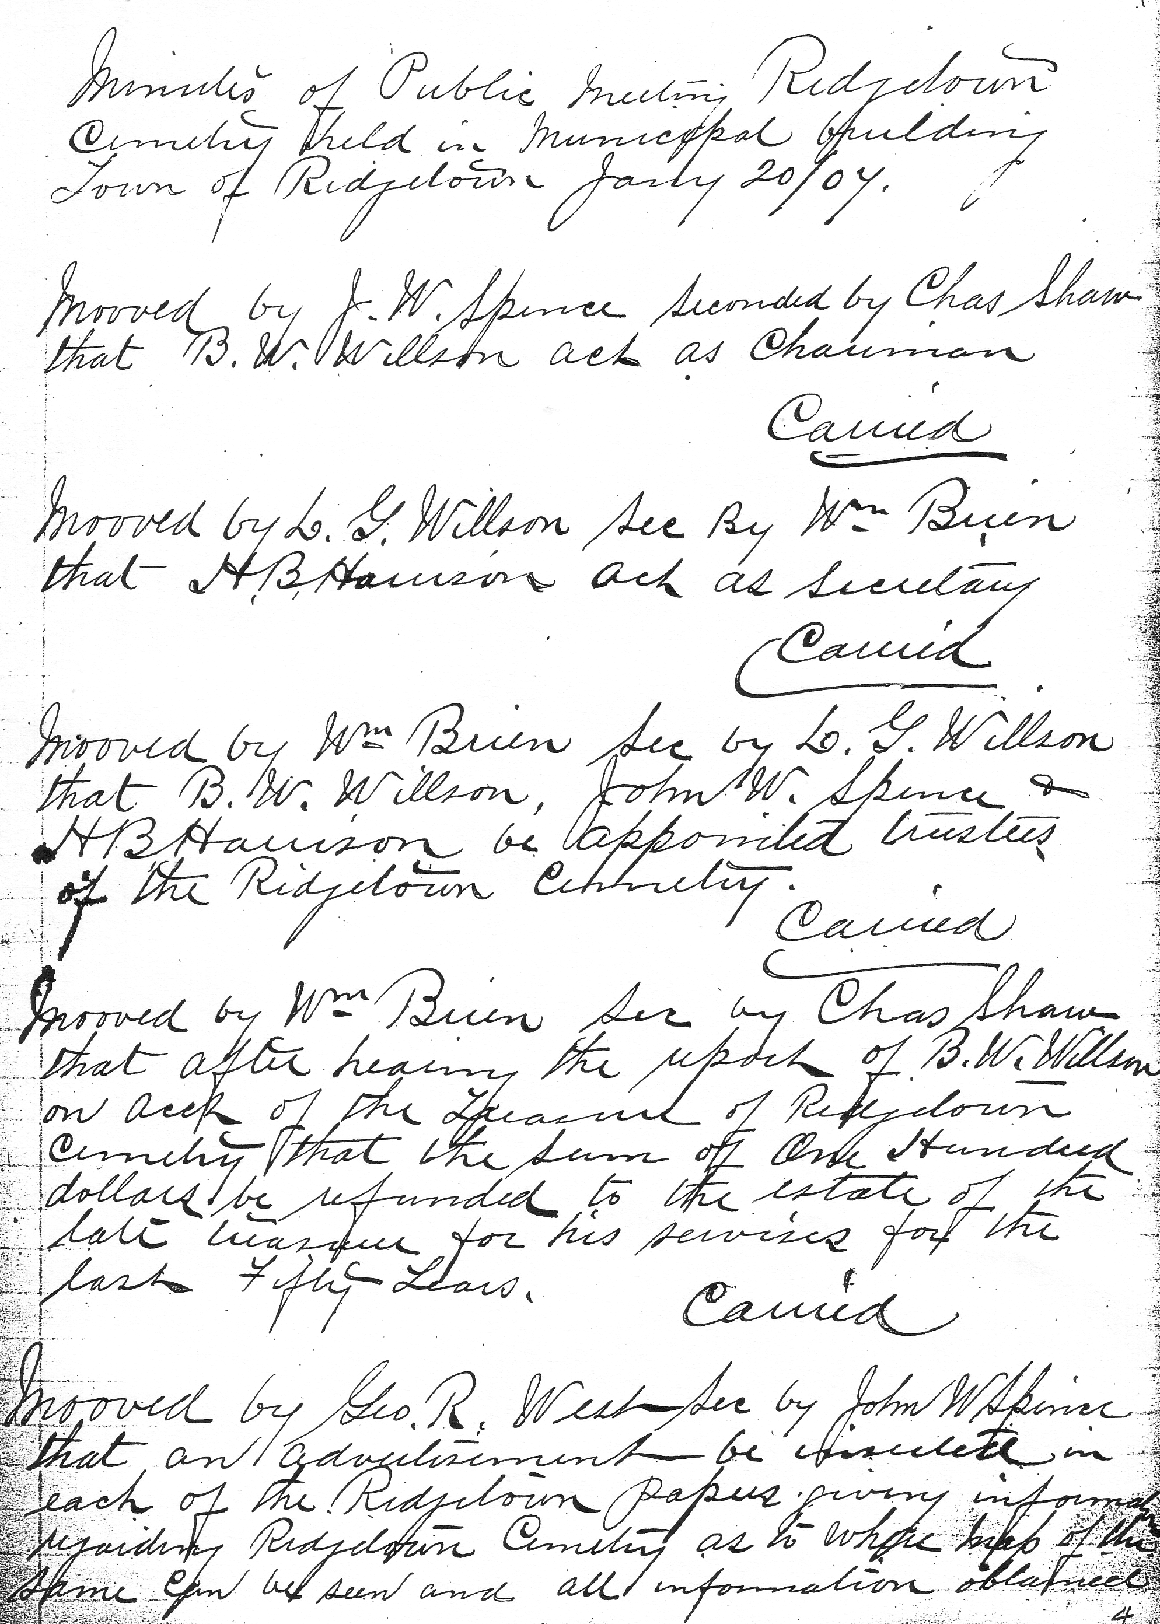 Minutes of Public Meeting Ridgetown
Cemetry held in Municipal building
Town of Ridgetown Jany 20/04.
Mooved by J. W. Spence seconded by Chas Shaw
that B. W. Willson act as Chairman
Carried
Mooved by L. G. Willson sec By Wm Brien
that H.B. Harrison act as secretary
Carried
Mooved by Wm Brien sec by L. G. Willson
that B. W. Willson, John W. Spence &
H B Harrison be appointed trustees
of the Ridgetown Cemetry.
Carried
Mooved by Wm Brien sec by Chas Shaw
that after hearing the report of B. W. Willson
on acct of the Treasurer of Ridgetown
Cemetry that the sum of One Hundred
dollars be refunded to the estate of the
late treasurer for his services for the
last Fifty Years.
Carried
Mooved by Geo. R. West sec by John W Spence
that an advertisement be inserted in
each of the Ridgetown papers giving
regarding Ridgetown Cemetry as to where map of the
same can be seen and all information obtained
4